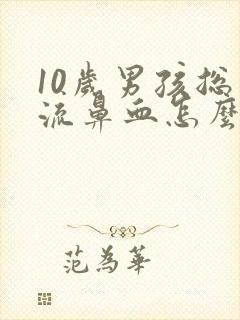 10歲男孩總
流鼻血怎麼
范為華